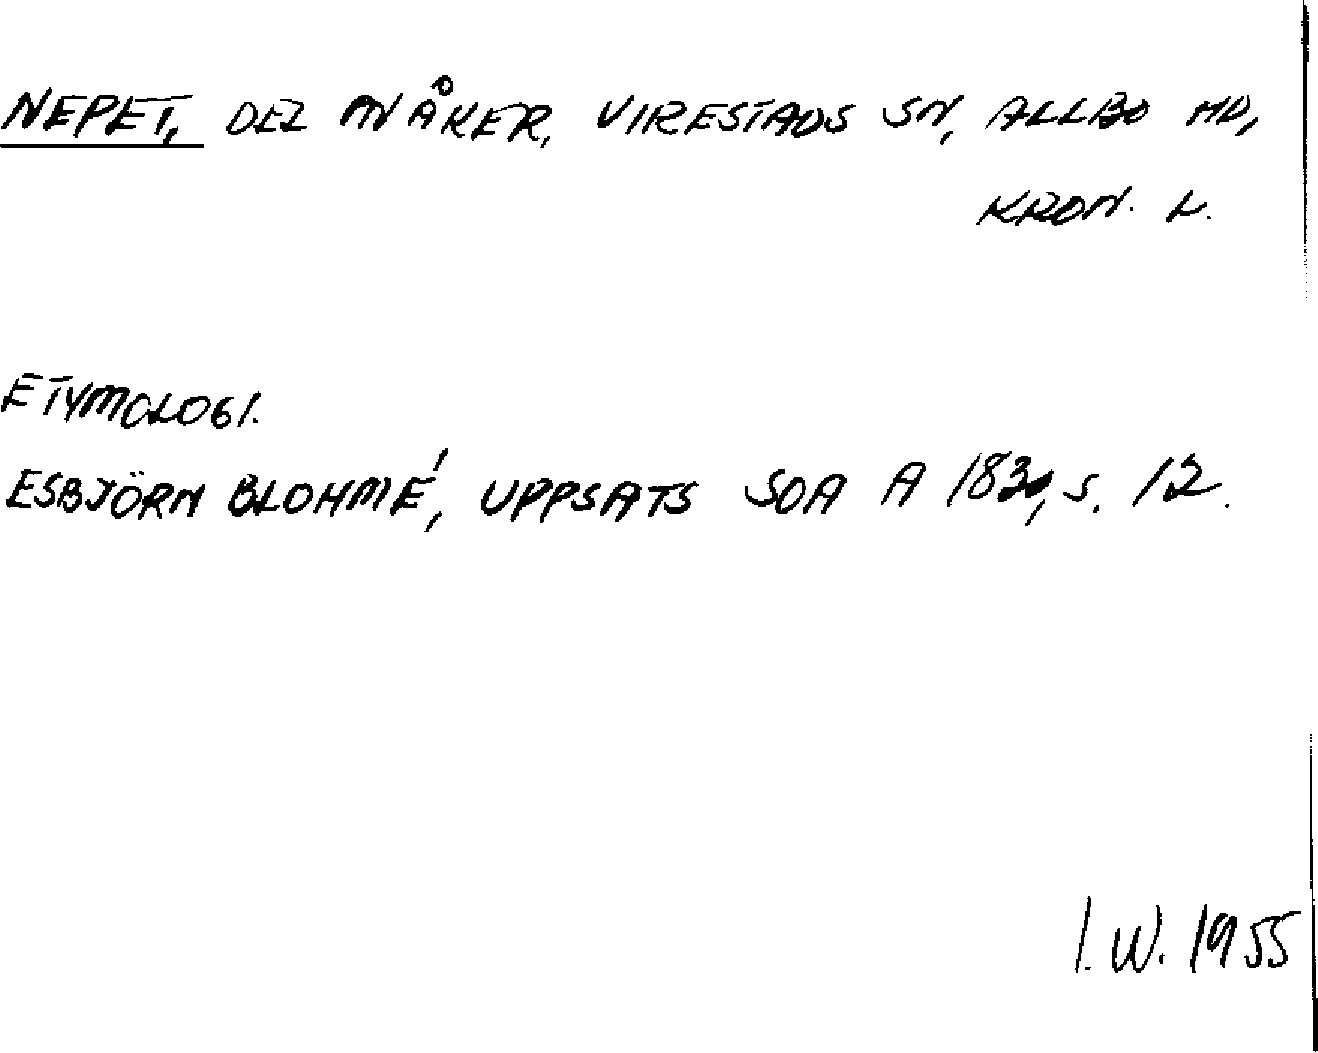 NEPET, DEL AV ÅKER, VIRESTADS SN, ALLBO HD,
KRON. L.
ETYMOLOGI.
ESBJÖRN BLOHMÉ, UPPSATS SOA A 1830, S. 12.
I.W. 1955